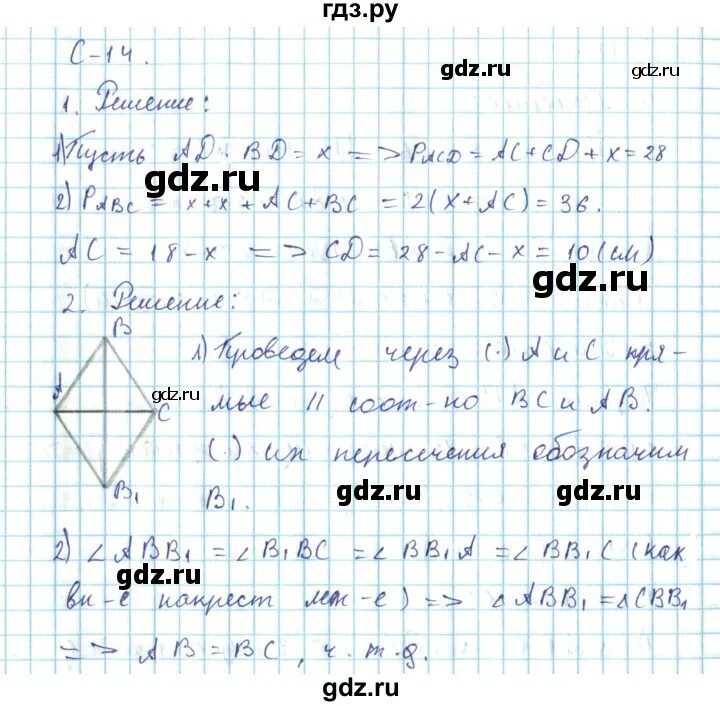 гдз.ру
С-14.
gdz.ru
gdz.ru
1. Решение:
1) Пусть AD = BD = x => PACD = AC + CD + x = 28
gdz.ru
2) PABC = x + x + AC + BC = 2(x + AC) = 36.
AC = 18 - x => CD = 28 - AC - x = 10 (см)
gdz.ru
2. Решение:
B
1) Проведем через (·) A и C пря-
A
gdz.ru
C
мые || соот-но BC и AB.
(·) их пересечения обозначим
B1
B1.
gdz.ru
gdz.ru
2) ∠ABB1 = ∠B1BC = ∠BB1A = ∠BB1C (как
вн-е накрест леж-е) => ∠ABB1 = ∠CBB1
=> AB = BC, ч.т.д.
gdz.ru
gdz.ru
gdz.ru